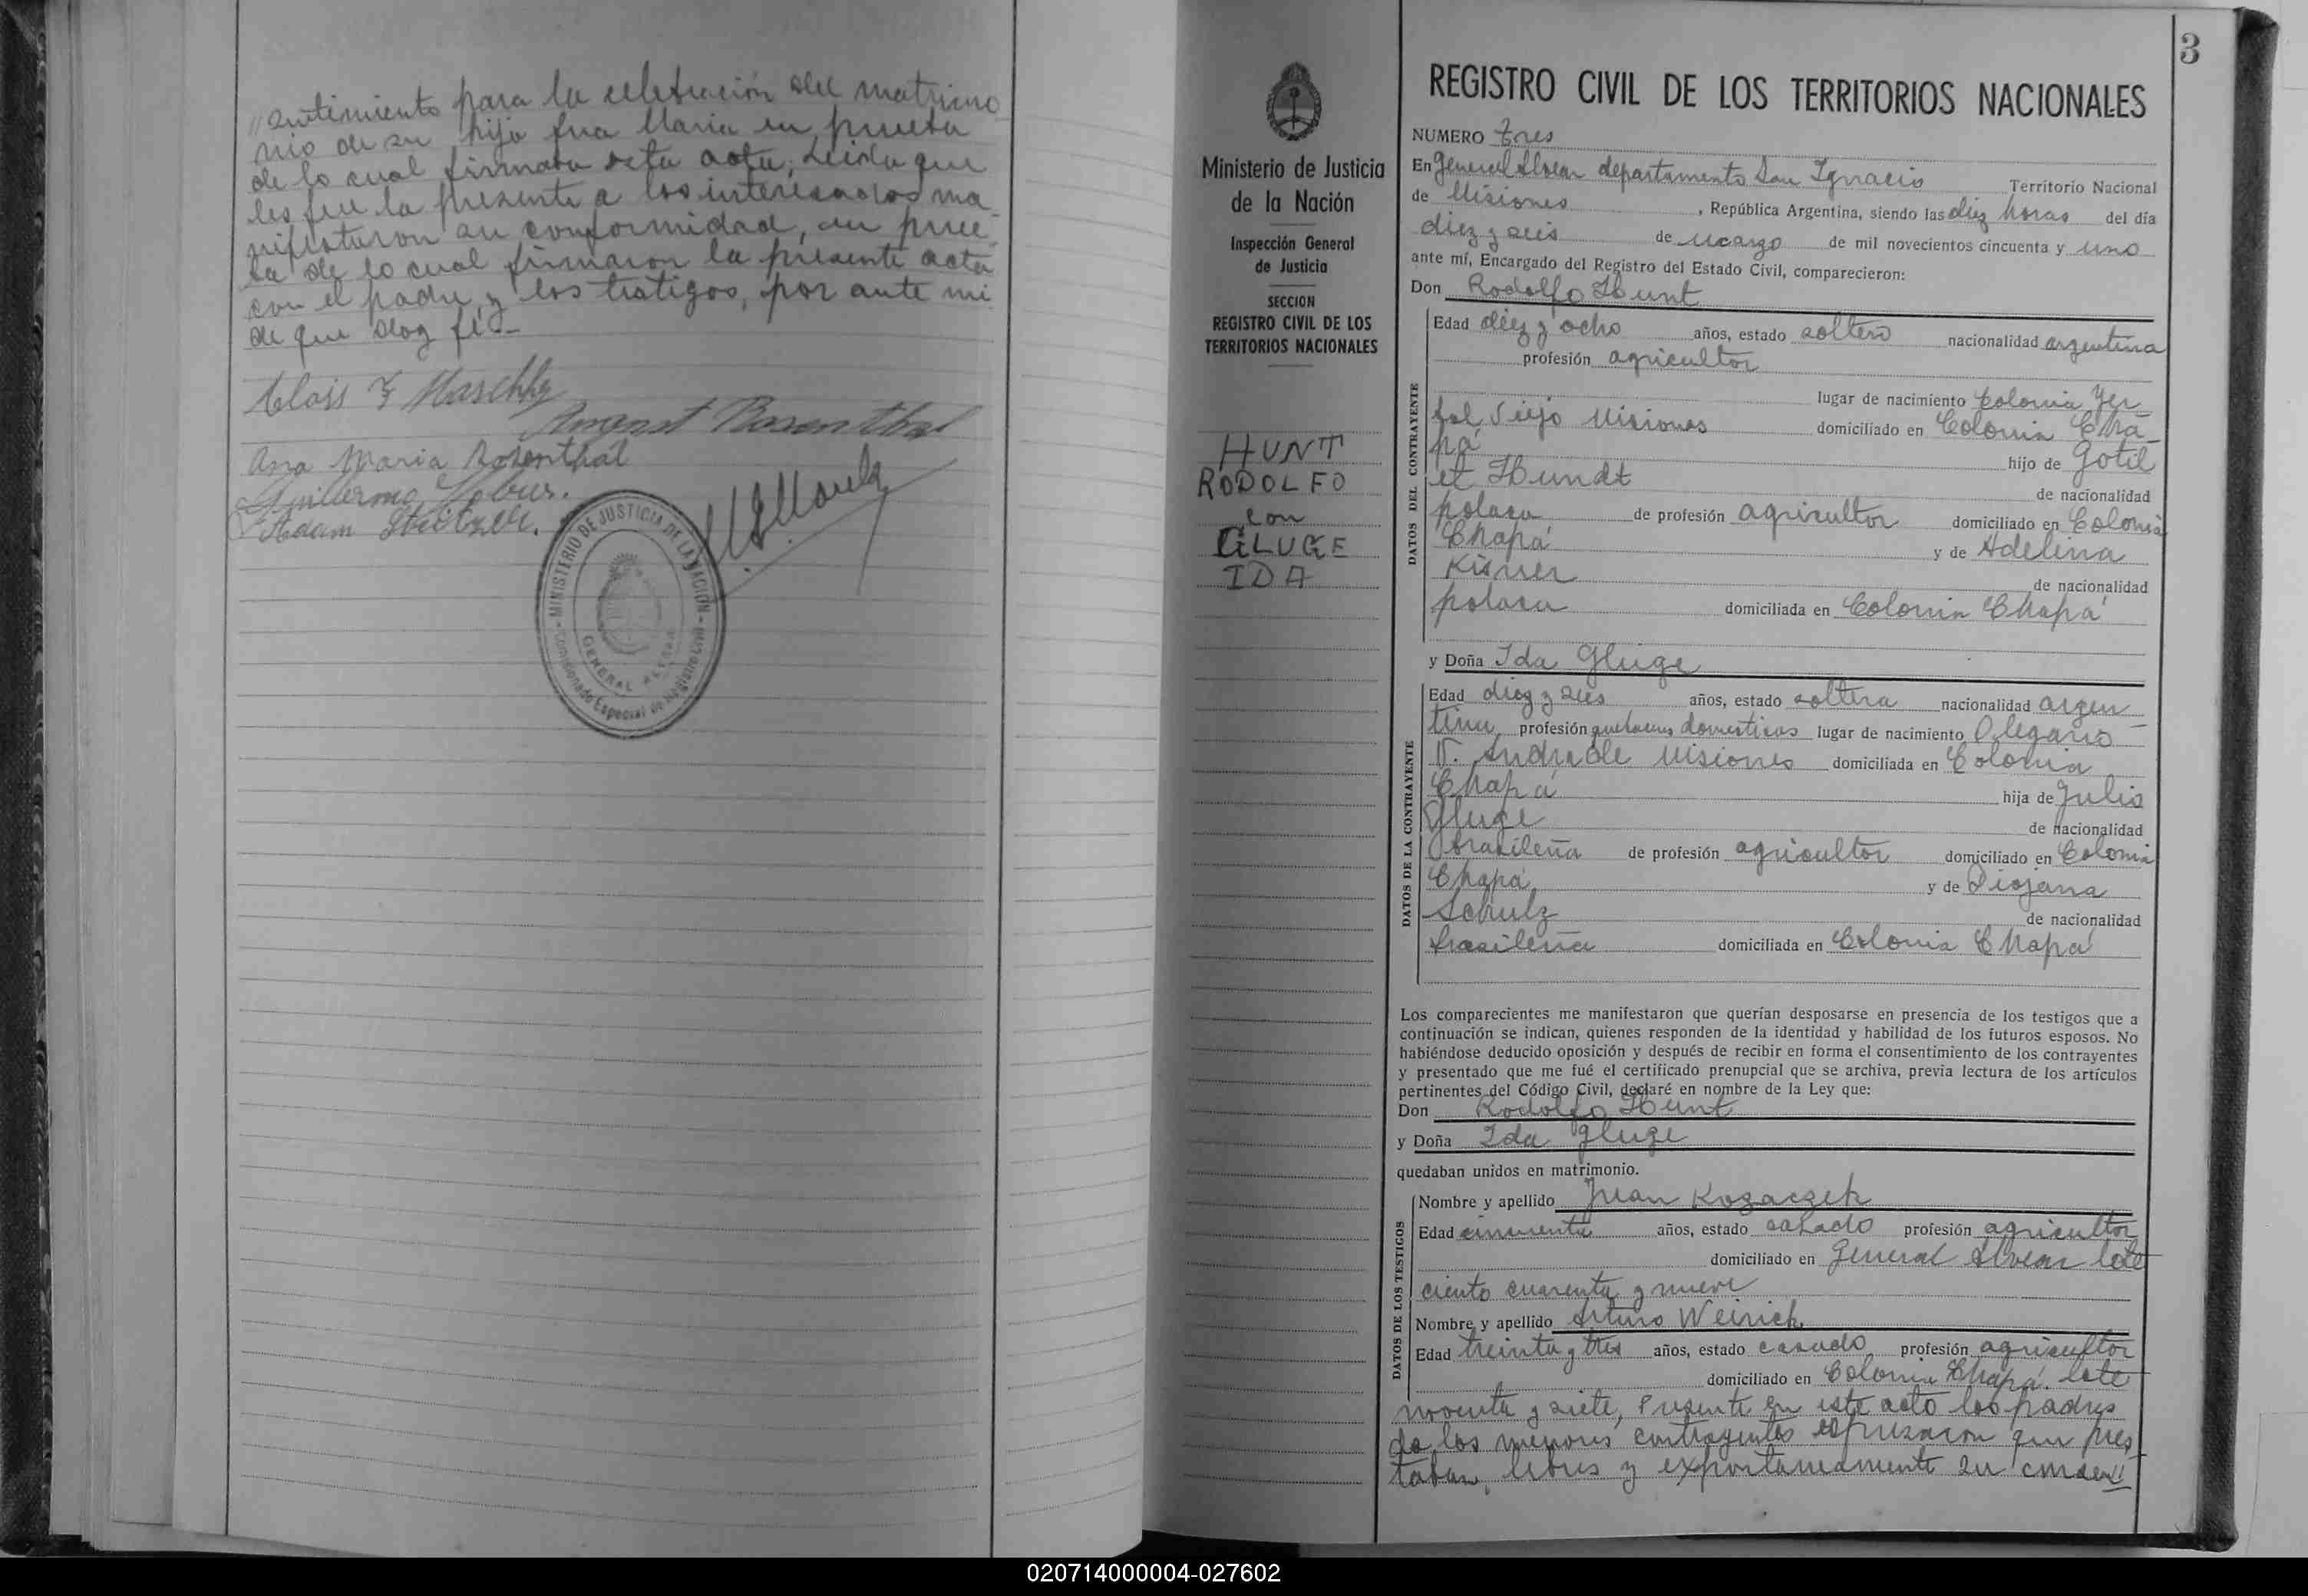 sentimiento para la celebración del matrimo
nio de su hija Ana Maria en prueba
de lo cual firmara esta acta, Leida que
les fue la presente a los interesados ma
nifestaron su conformidad, en prue
ba de lo cual firmaron la presente acta
con el padre y los testigos, por ante mi
de que doy fé.-
Ana Maria Rosenthal
MINISTERIO DE JUSTICIA DE LA NACION
GENERAL ALVEAR
Comisionado Especial de Registro Civil
3
Ministerio de Justicia
de la Nación
Inspección General
de Justicia
SECCION
REGISTRO CIVIL DE LOS
TERRITORIOS NACIONALES
HUNT
RODOLFO
con
GLUGE
IDA
REGISTRO CIVIL DE LOS TERRITORIOS NACIONALES
NUMERO tres
En General Alvear departamento San Ignacio Territorio Nacional
de Misiones, República Argentina, siendo las diez horas del día
diez y seis de marzo de mil novecientos cincuenta y uno
ante mí, Encargado del Registro del Estado Civil, comparecieron:
Don Rodolfo Hunt
DATOS DEL CONTRAYENTE
Edad diez y ocho años, estado soltero nacionalidad argentina
profesión agricultor
lugar de nacimiento Colonia Yer
bal Viejo Misiones domiciliado en Colonia Cha-
pá hijo de Gotil
et Hundt de nacionalidad
polaca de profesión agricultor domiciliado en Colonia
Chapá y de Adelina
Kisner de nacionalidad
polaca domiciliada en Colonia Chapá
y Doña Ida Gluge
DATOS DE LA CONTRAYENTE
Edad diez y seis años, estado soltera nacionalidad argen
tina profesión quehaceres domesticos lugar de nacimiento Olegario
V. Andrade Misiones domiciliada en Colonia
Chapá hija de Julio
Gluge de nacionalidad
brasileña de profesión agricultor domiciliado en Colonia
Chapá y de Diojana
Schulz de nacionalidad
brasileña domiciliada en Colonia Chapá
Los comparecientes me manifestaron que querían desposarse en presencia de los testigos que a
continuación se indican, quienes responden de la identidad y habilidad de los futuros esposos. No
habiéndose deducido oposición y después de recibir en forma el consentimiento de los contrayentes
y presentado que me fué el certificado prenupcial que se archiva, previa lectura de los artículos
pertinentes del Código Civil, declaré en nombre de la Ley que:
Don Rodolfo Hunt
y Doña Ida Gluge
quedaban unidos en matrimonio.
DATOS DE LOS TESTIGOS
Nombre y apellido Juan Kozaczek
Edad cincuenta años, estado casado profesión agricultor
domiciliado en General Alvear lote
ciento cuarenta y nueve
Nombre y apellido Arturo Weirich
Edad treinta y tres años, estado casado profesión agricultor
domiciliado en Colonia Chapá lote
noventa y siete, Presente en este acto los padres
de los menores contrayentes expresaron que pres
taban, libres y expontaneamente su consen
020714000004-027602